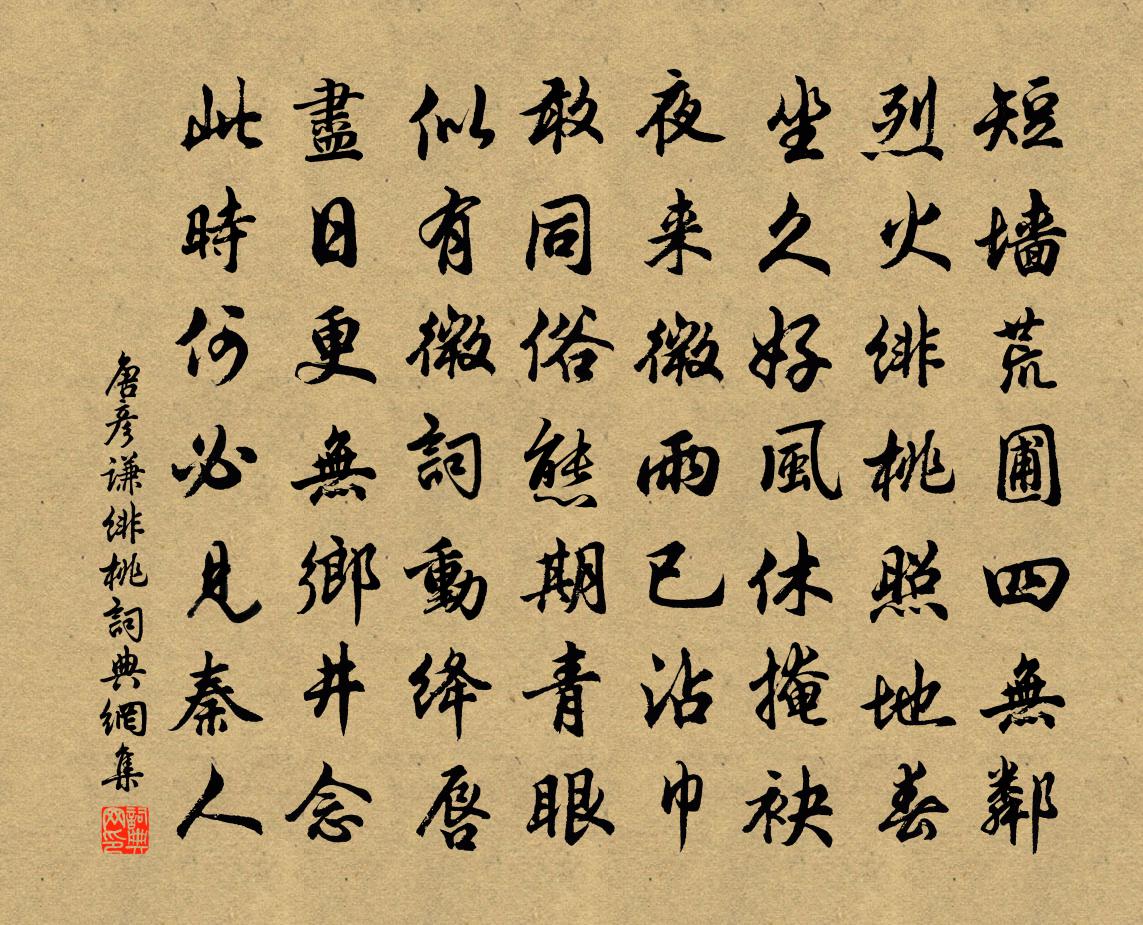 短墻荒圃四無鄰
烈火緋桃照地春
坐久好風休掩袂
夜来微雨已沾巾
敢同俗態期青眼
似有微詞動絳唇
盡日更無鄉井念
此時何必見秦人
唐彥谦緋桃詞典網集
詞典网印